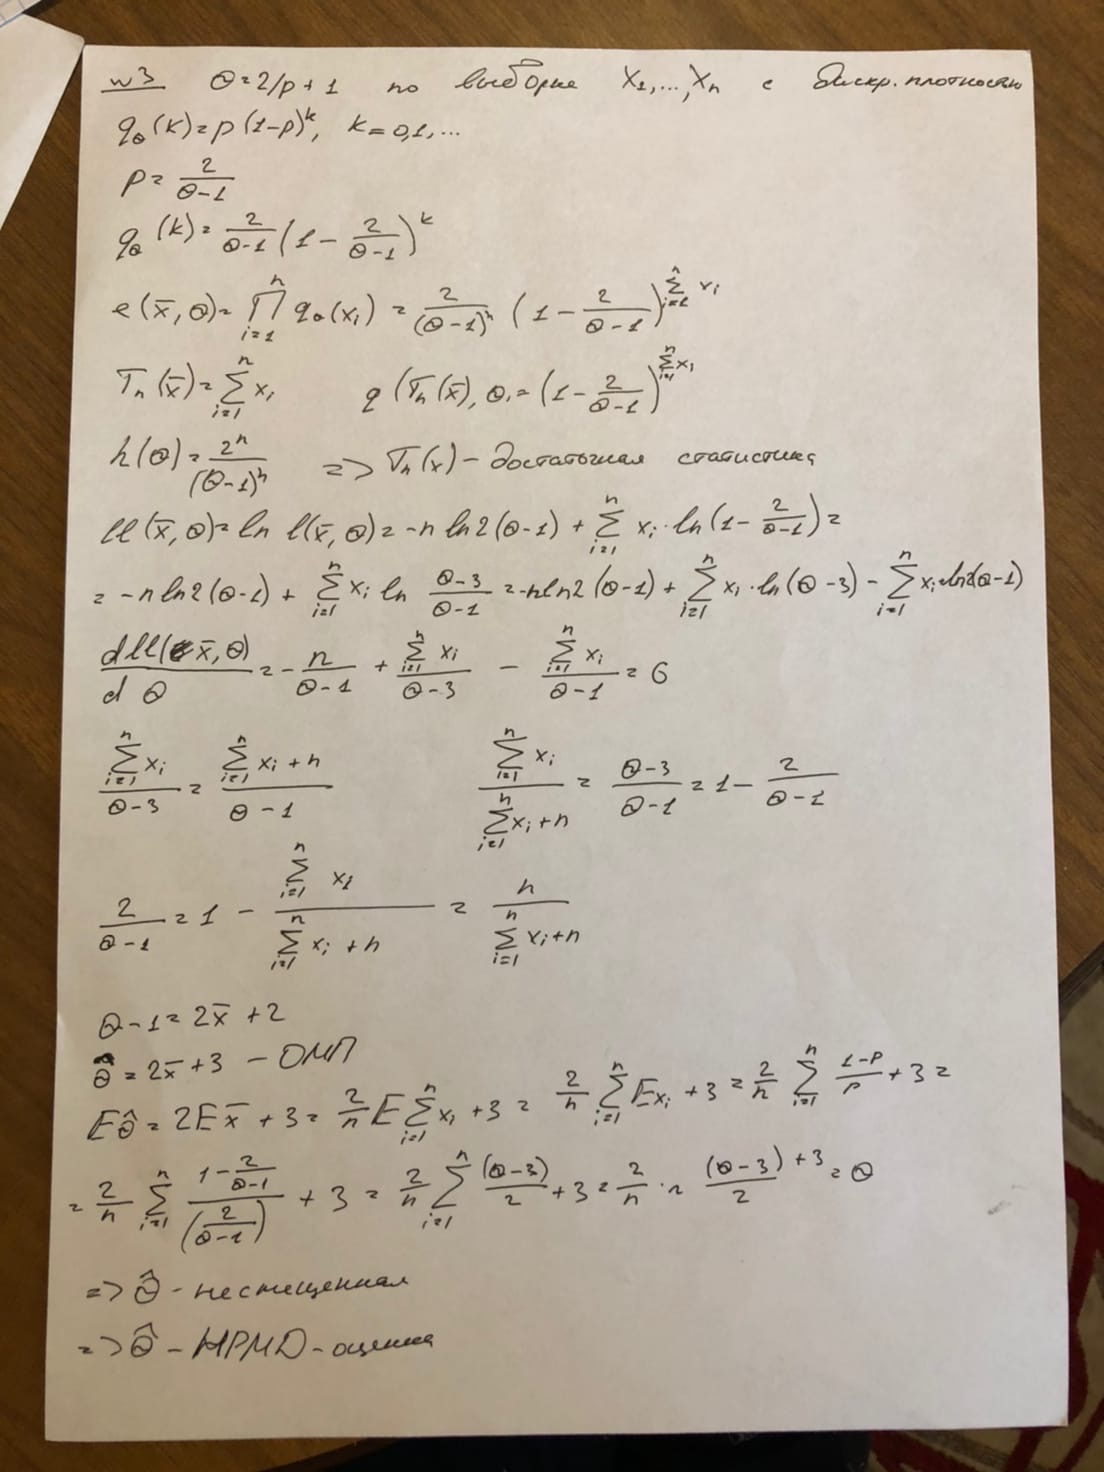 №3 Θ=2/p+1 по выборке X₁,...,Xₙ с дискр. плотностью
q_Θ(k)=p(1-p)^k, k=0,1,...
p=2/(Θ-1)
q_Θ(k)=2/(Θ-1) (1-2/(Θ-1))^k
e(x̄,Θ)=∏_{i=1}^n q_Θ(x_i)=2/(Θ-1)^n (1-2/(Θ-1))^{∑_{i=1}^n x_i}
Tₙ(x̄)=∑_{i=1}^n x_i q(Tₙ(x̄),Θ)=(1-2/(Θ-1))^{∑_{i=1}^n x_i}
h(Θ)=2^n/(Θ-1)^n => Tₙ(x) - достаточная статистика
ll(x̄,Θ)=ln l(x̄,Θ)=-n ln2(Θ-1)+∑_{i=1}^n x_i·ln(1-2/(Θ-1))=
=-n ln2(Θ-1)+∑_{i=1}^n x_i ln (Θ-3)/(Θ-1)=-n ln2(Θ-1)+∑_{i=1}^n x_i·ln(Θ-3)-∑_{i=1}^n x_i ln(Θ-1)
dll(x̄,Θ)/dΘ=-n/(Θ-1)+∑_{i=1}^n x_i/(Θ-3)-∑_{i=1}^n x_i/(Θ-1)=0
∑_{i=1}^n x_i/(Θ-3)=(∑_{i=1}^n x_i+n)/(Θ-1) ∑_{i=1}^n x_i/(∑_{i=1}^n x_i+n)=(Θ-3)/(Θ-1)=1-2/(Θ-1)
2/(Θ-1)=1-∑_{i=1}^n x_i/(∑_{i=1}^n x_i+n)=n/(∑_{i=1}^n x_i+n)
Θ-1=2x̄+2
Θ̂=2x̄+3 - ОМП
EΘ̂=2Ex̄+3=2/n E∑_{i=1}^n x_i+3=2/n ∑_{i=1}^n Ex_i+3=2/n ∑_{i=1}^n (1-p)/p+3=
=2/n ∑_{i=1}^n (1-2/(Θ-1))/(2/(Θ-1))+3=2/n ∑_{i=1}^n (Θ-3)/2+3=2/n·n (Θ-3)/2+3=Θ
=> Θ̂ - несмещенная
=> Θ̂ - НРМД-оценка